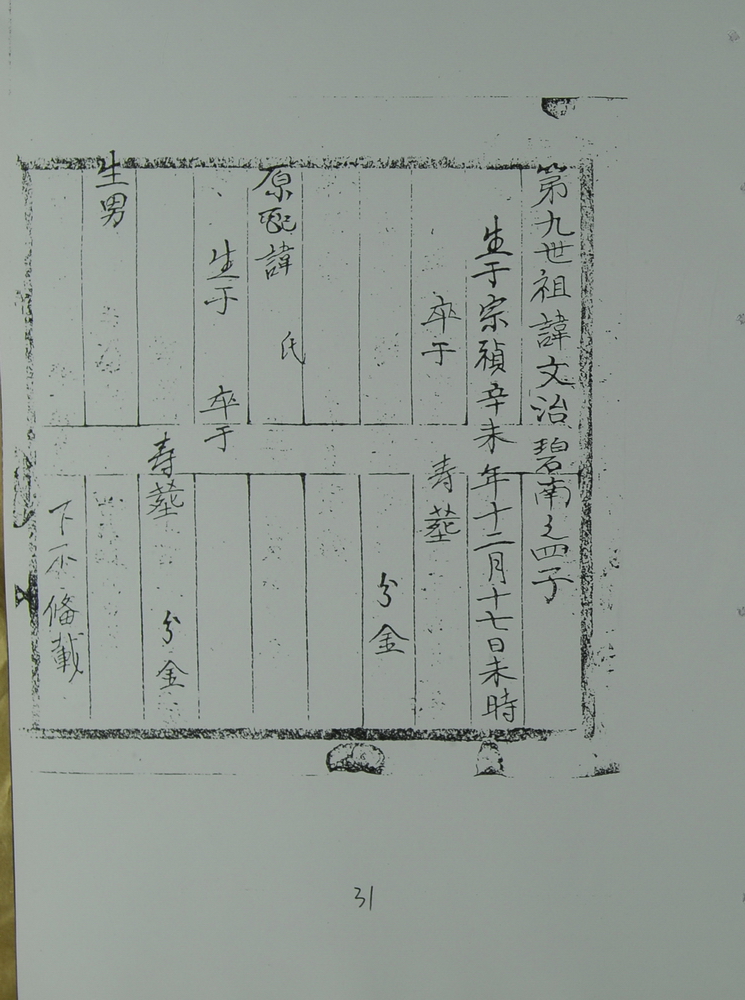 第九世祖諱文治碧南之四子
生于宗禎辛未年十二月十七日未時
卒于 壽 塟
分金
原配諱 氏
生于 卒于
壽 塟 分金
生男
下不俻載
31